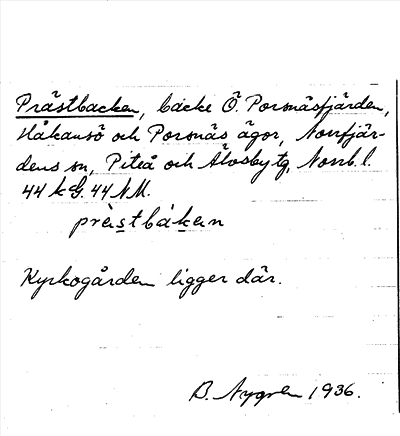 Prästbacken, backe Ö. Porsnäsfjärden,
Håkansö och Porsnäs ägor, Norrfjär-
dens sn, Piteå och Älvsby tg, Norrb. l.
44 k G. 44 N M.
prèstbákein
Kyrkogården ligger där.
B. Nygren 1936.